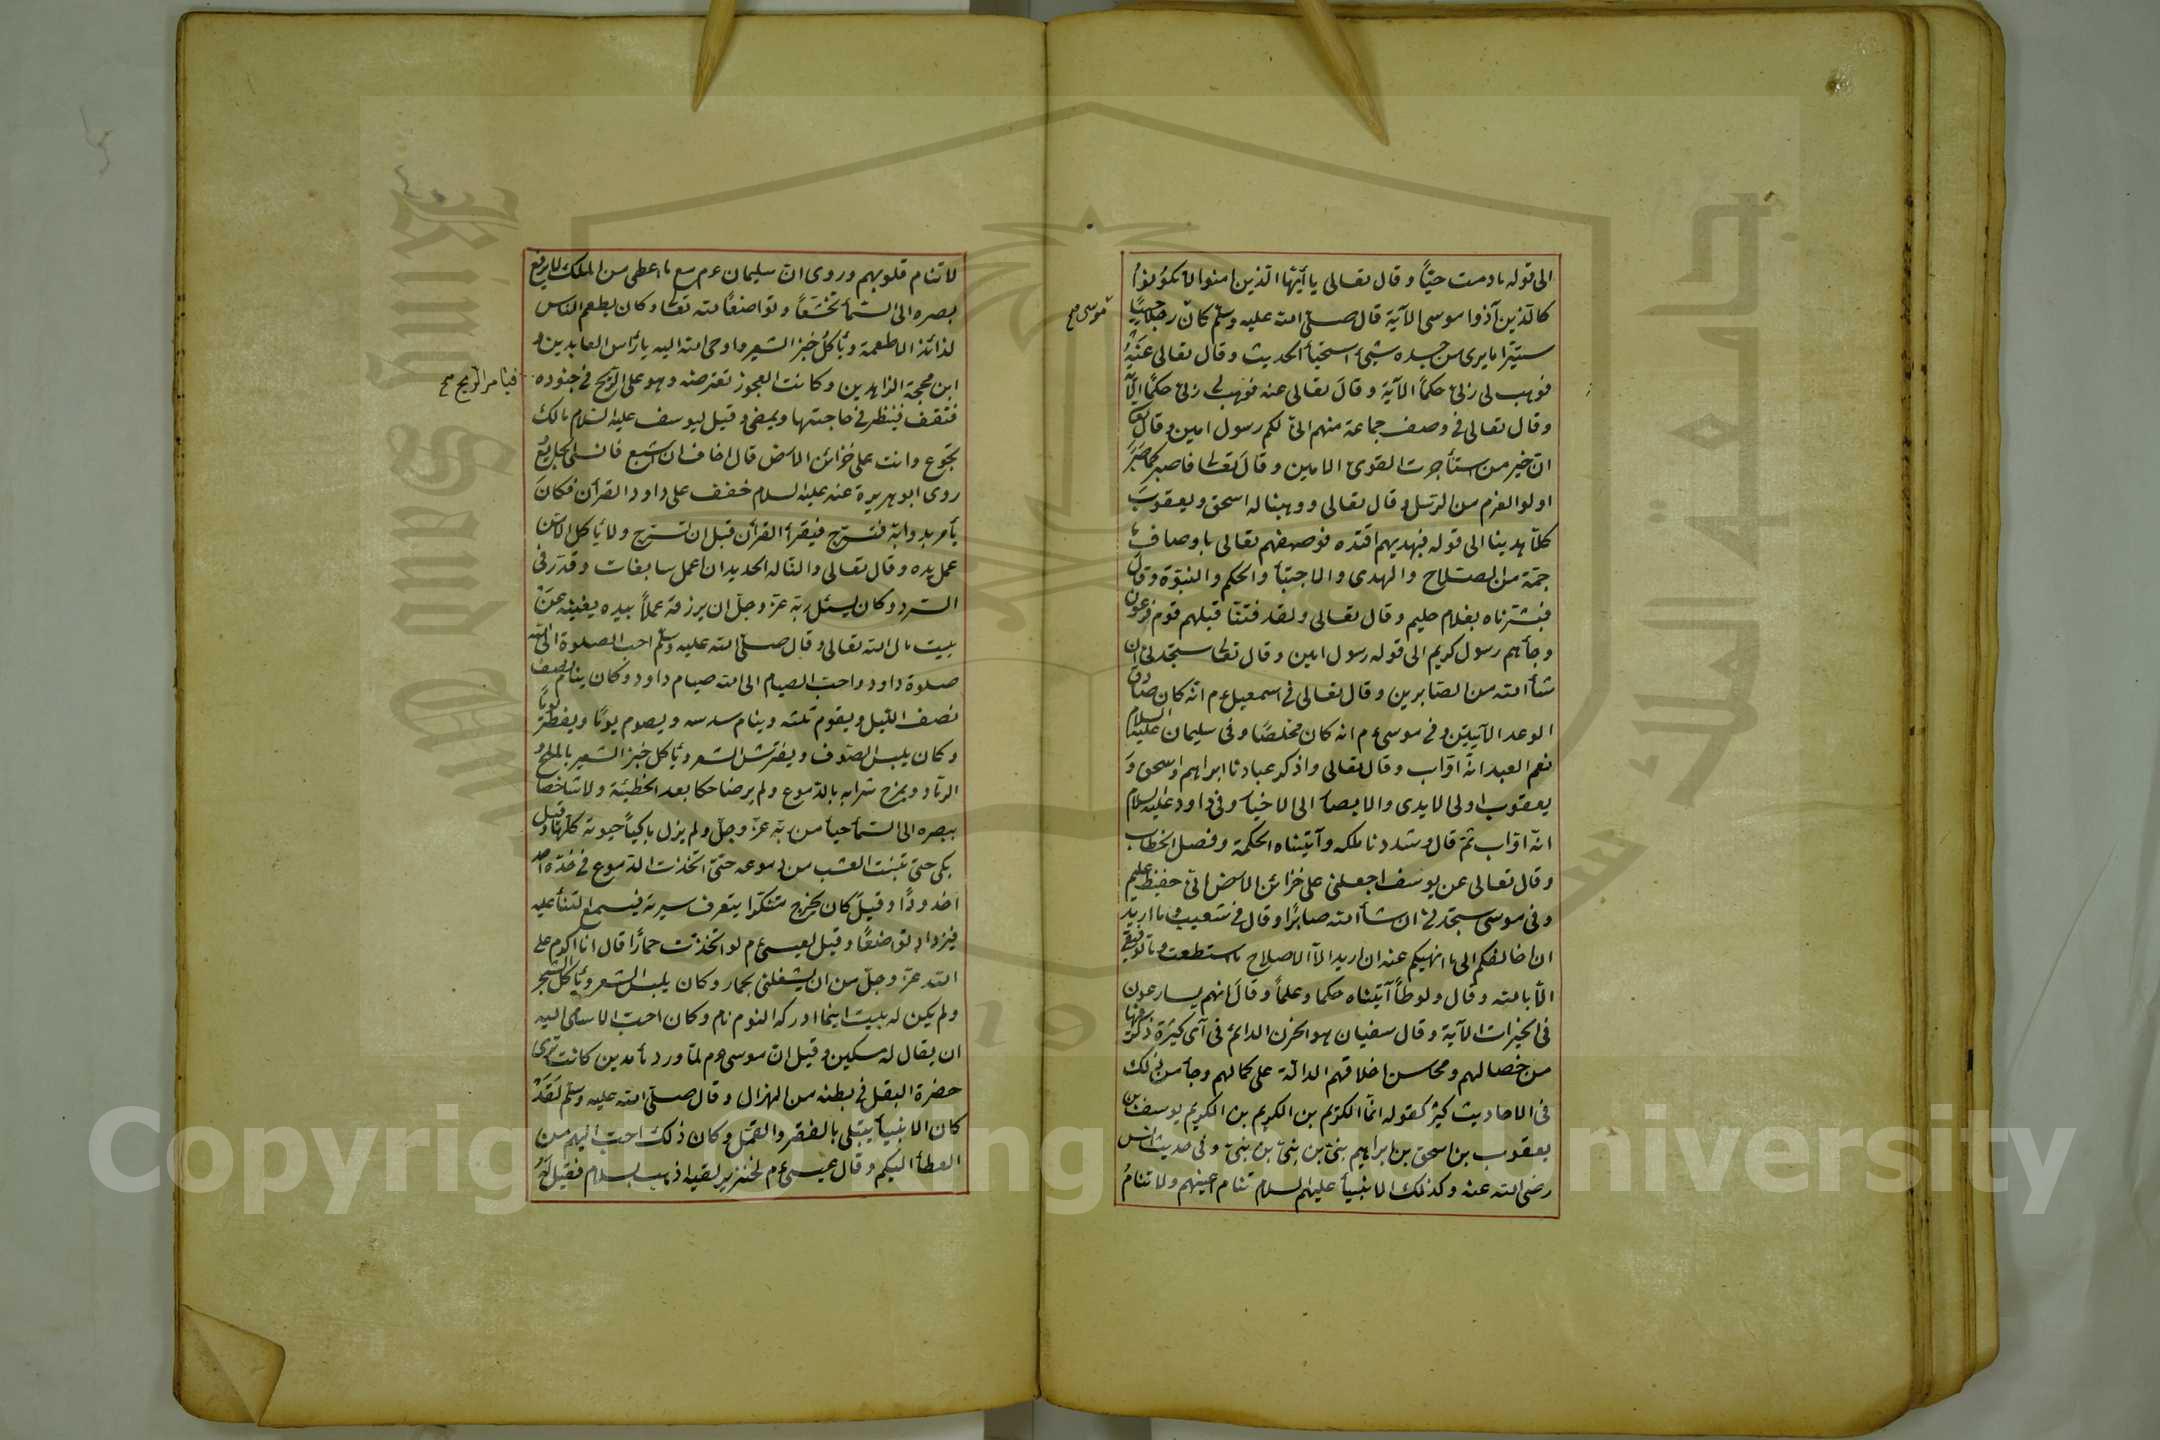 الى قوله مادمت حيّاً وقال تعالى يا أيّها الّذين امنوا لا تكونوا
كالّذين آذوا موسى الآية قال صلّى الله عليه وسلّم كان رجلا حييّا
موسى صح
ستيّرا ما يرى من جسده شيء استحياء الحديث وقال تعالى عنه
فوهب لى ربّى حكماً الآية وقال تعالى عنه فوهب لى ربّى حكماً الآية
وقال تعالى فى وصف جماعة منهم انّى لكم رسول امين وقال
انّ خير من استأجرت القوىّ الامين وقال تعالى فاصبر كما صبر
اولوا العزم من الرّسل وقال تعالى ووهبنا له اسحق ويعقوب
كلّا هدينا الى قوله فبهديهم اقتده فوصفهم تعالى باوصاف
جمّة من الصّلاح والهدى والاجتباء والحكم والنبوّة وقال
فبشّرناه بغلام حليم وقال تعالى ولقد فتنّا قبلهم قوم فرعون
وجاءهم رسول كريم الى قوله رسول امين وقال تعالى ستجدنى ان
شاء الله من الصّابرين وقال تعالى فى اسمعيل ءم انّه كان صادق
الوعد الآيتين وفى موسى ءم انه كان مخلصًا وفى سليمان عليه السلام
نعم العبد انّه اوّاب وقال تعالى واذكر عبادنا ابراهيم واسحق و
يعقوب اولى الايدى والابصار الى الاخيار وفى داود عليه السلام
انّه اوّاب ثمّ قال وشددنا ملكه وآتيناه الحكمة وفصل الخطاب
وقال تعالى عن يوسف اجعلنى على خزائن الارض انّى حفيظ عليم
وفى موسى ستجدنى ان شاء الله صابرًا وقال فى شعيب وما اريد
ان اخالفكم الى ما انهيكم عنه ان اريد الّا الاصلاح ما استطعت وما توفيقى
الّا بالله وقال ولوطاً آتيناه حكما وعلماً وقال انهم يسارعون
فى الخيرات الآية وقال سفيان هو الحزن الدائم فى آى كثيرة ذكر فيها
من خصالهم ومحاسن اخلاقهم الدالّة على كمالهم وجاء من ذلك
فى الاحاديث كثير كقوله انّما الكريم بن الكريم بن الكريم يوسف بن
يعقوب بن اسحق بن ابراهيم نبىّ بن نبىّ بن نبىّ وفى حديث انس
رضى الله عنه وكذلك الانبياء عليهم السلام تنام اعينهم ولا تنام
لا تنام قلوبهم وروى انّ سليمان ءم مع ما اعطى من الملك لا يرفع
بصره الى السّماء تخشّعاً وتواضعاً لله تعا وكان يطعم النّاس
لذائذ الاطعمة ويأكل خبز الشعير واوحى الله اليه يا رأس العابدين و
ابن محجة الزاهدين وكانت العجوز تعترضه وهو على الرّيح فى جنوده
فيأمر الرّيح صح
فتقف فينظر فى حاجتها ويمضى وقيل ليوسف عليه السّلام مالك
تجوع وانت على خزائن الارض قال اخاف ان اشبع فانسى الجايع
روى ابو هريرة عنه عليه السلام خفف على داود القرآن فكان
يأمر بدوابّه فتسرج فيقرأ القرآن قبل ان تسرج ولا يأكل الّا من
عمل يده وقال تعالى والنّا له الحديد ان اعمل سابغات وقدّر فى
السّرد وكان يسئل ربّه عزّ وجلّ ان يرزقه عملاً بيده يغنيه عن
بيت مال الله تعالى وقال صلّى الله عليه وسلّم احبّ الصلوة الى الله
صلوة داود واحبّ الصيام الى الله صيام داود وكان ينام نصف
نصف اللّيل ويقوم ثلثه وينام سدسه ويصوم يومًا ويفطر يومًا
وكان يلبس الصّوف ويفترش الشعر ويأكل خبز الشعير بالملح و
الرّماد ويمزج شرابه بالدّموع ولم ير ضاحكا بعد الخطيئة ولا شاخصا
ببصره الى السّماء حياء من ربّه عزّ وجلّ ولم يزل باكياً حيوته كلّها وقيل
بكى حتى نبت العشب من دموعه حتّى اتّخذت الدّموع فى خدّه
اخدودًا وقيل كان يخرج متنكرا يتعرف سيرته فيسمع الثناء عليه
فيزداد تواضعًا وقيل لعيسى ءم لو اتّخذت حمارًا قال انا اكرم على
الله عزّ وجلّ من ان يشغلنى بحمار وكان يلبس الشعر ويأكل الشجر
ولم يكن له بيت اينما ادركه النوم نام وكان احبّ الاسامى اليه
ان يقال له مسكين وقيل انّ موسى ءم لمّا ورد ماء مدين كانت ترى
خضرة البقل فى بطنه من الهزال وقال صلّى الله عليه وسلّم لقد
كان الانبياء يبتلى بالفقر والقمّل وكان ذلك احبّ اليهم من
العطاء اليكم وقال عيسى ءم لخنزير لقيه اذهب بسلام فقيل له
Copyright © King Saud University